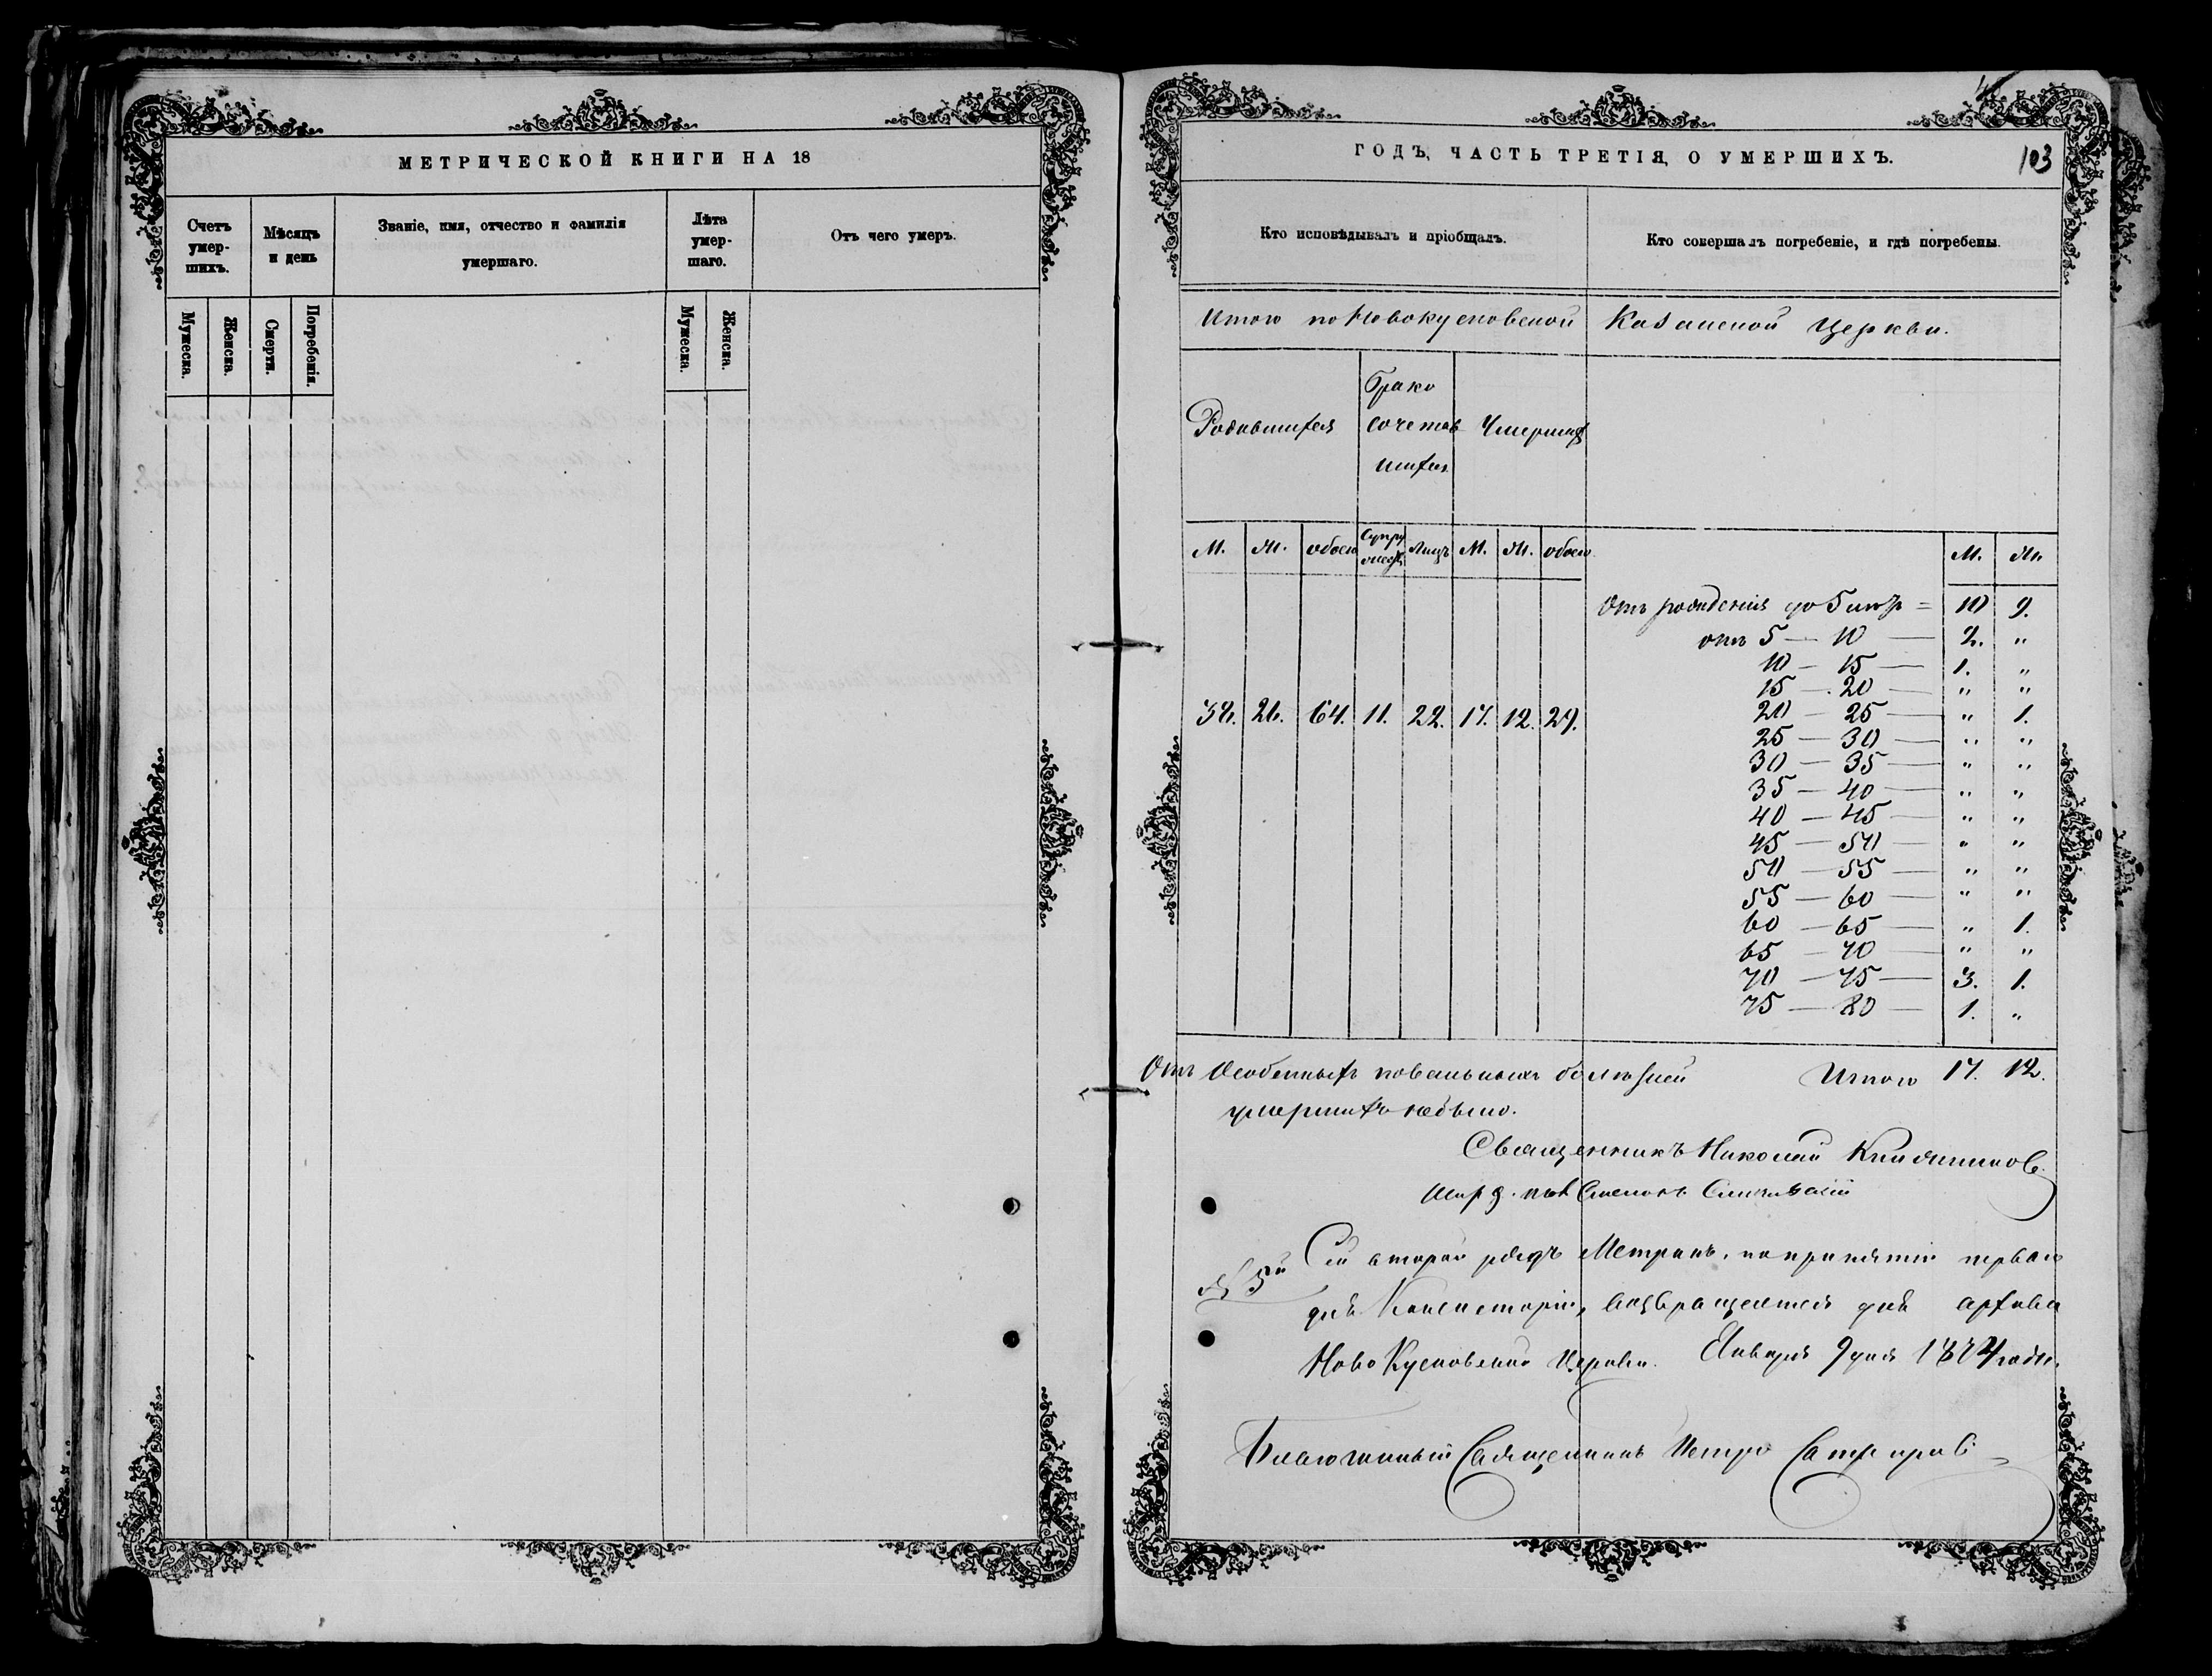 МЕТРИЧЕСКОЙ КНИГИ НА 18
Счетъ умер-шихъ.
Мѣсяцъ и день
Званіе, имя, отчество и фамилія умершаго.
Лѣта умер-шаго.
Отъ чего умеръ.
Мужеска.
Женска.
Смерти.
Погребенія.
Мужеска.
Женска.
ГОДЪ, ЧАСТЬ ТРЕТІЯ, О УМЕРШИХЪ.
103
Кто исповѣдывалъ и пріобщалъ.
Кто совершалъ погребеніе, и гдѣ погребены.
Итого по Новокусковской Казанской Церкви.
Родившихся
Брако
сочетав
шихся
Умерших
М. Ж. обоего Супру жествъ Лицъ М. Ж. обоего
М. Ж.
38. 26. 64. 11. 22. 17. 12. 29.
Отъ рожденія до 5 лѣтъ = 10 9.
отъ 5 — 10 — 2. „
10 — 15 — 1. „
15 — 20 — „ „
20 — 25 — „ 1.
25 — 30 — „ „
30 — 35 — „ „
35 — 40 — „ „
40 — 45 — „ „
45 — 50 — „ „
50 — 55 — „ „
55 — 60 — „ „
60 — 65 — „ 1.
65 — 70 — „ „
70 — 75 — 3. 1.
75 — 80 — 1. „
Отъ Особенныхъ повальныхъ болѣзней Итого 17. 12.
умершихъ небыло.
Священникъ Николай
Сей второй рядъ Метрикъ, по принятіи перваго
№ 5й
для Консисторіи, возвращается для архива
Ново Кусковской Церкви. Января 9 дня 1874 года.
Благочинный Священникъ Петръ